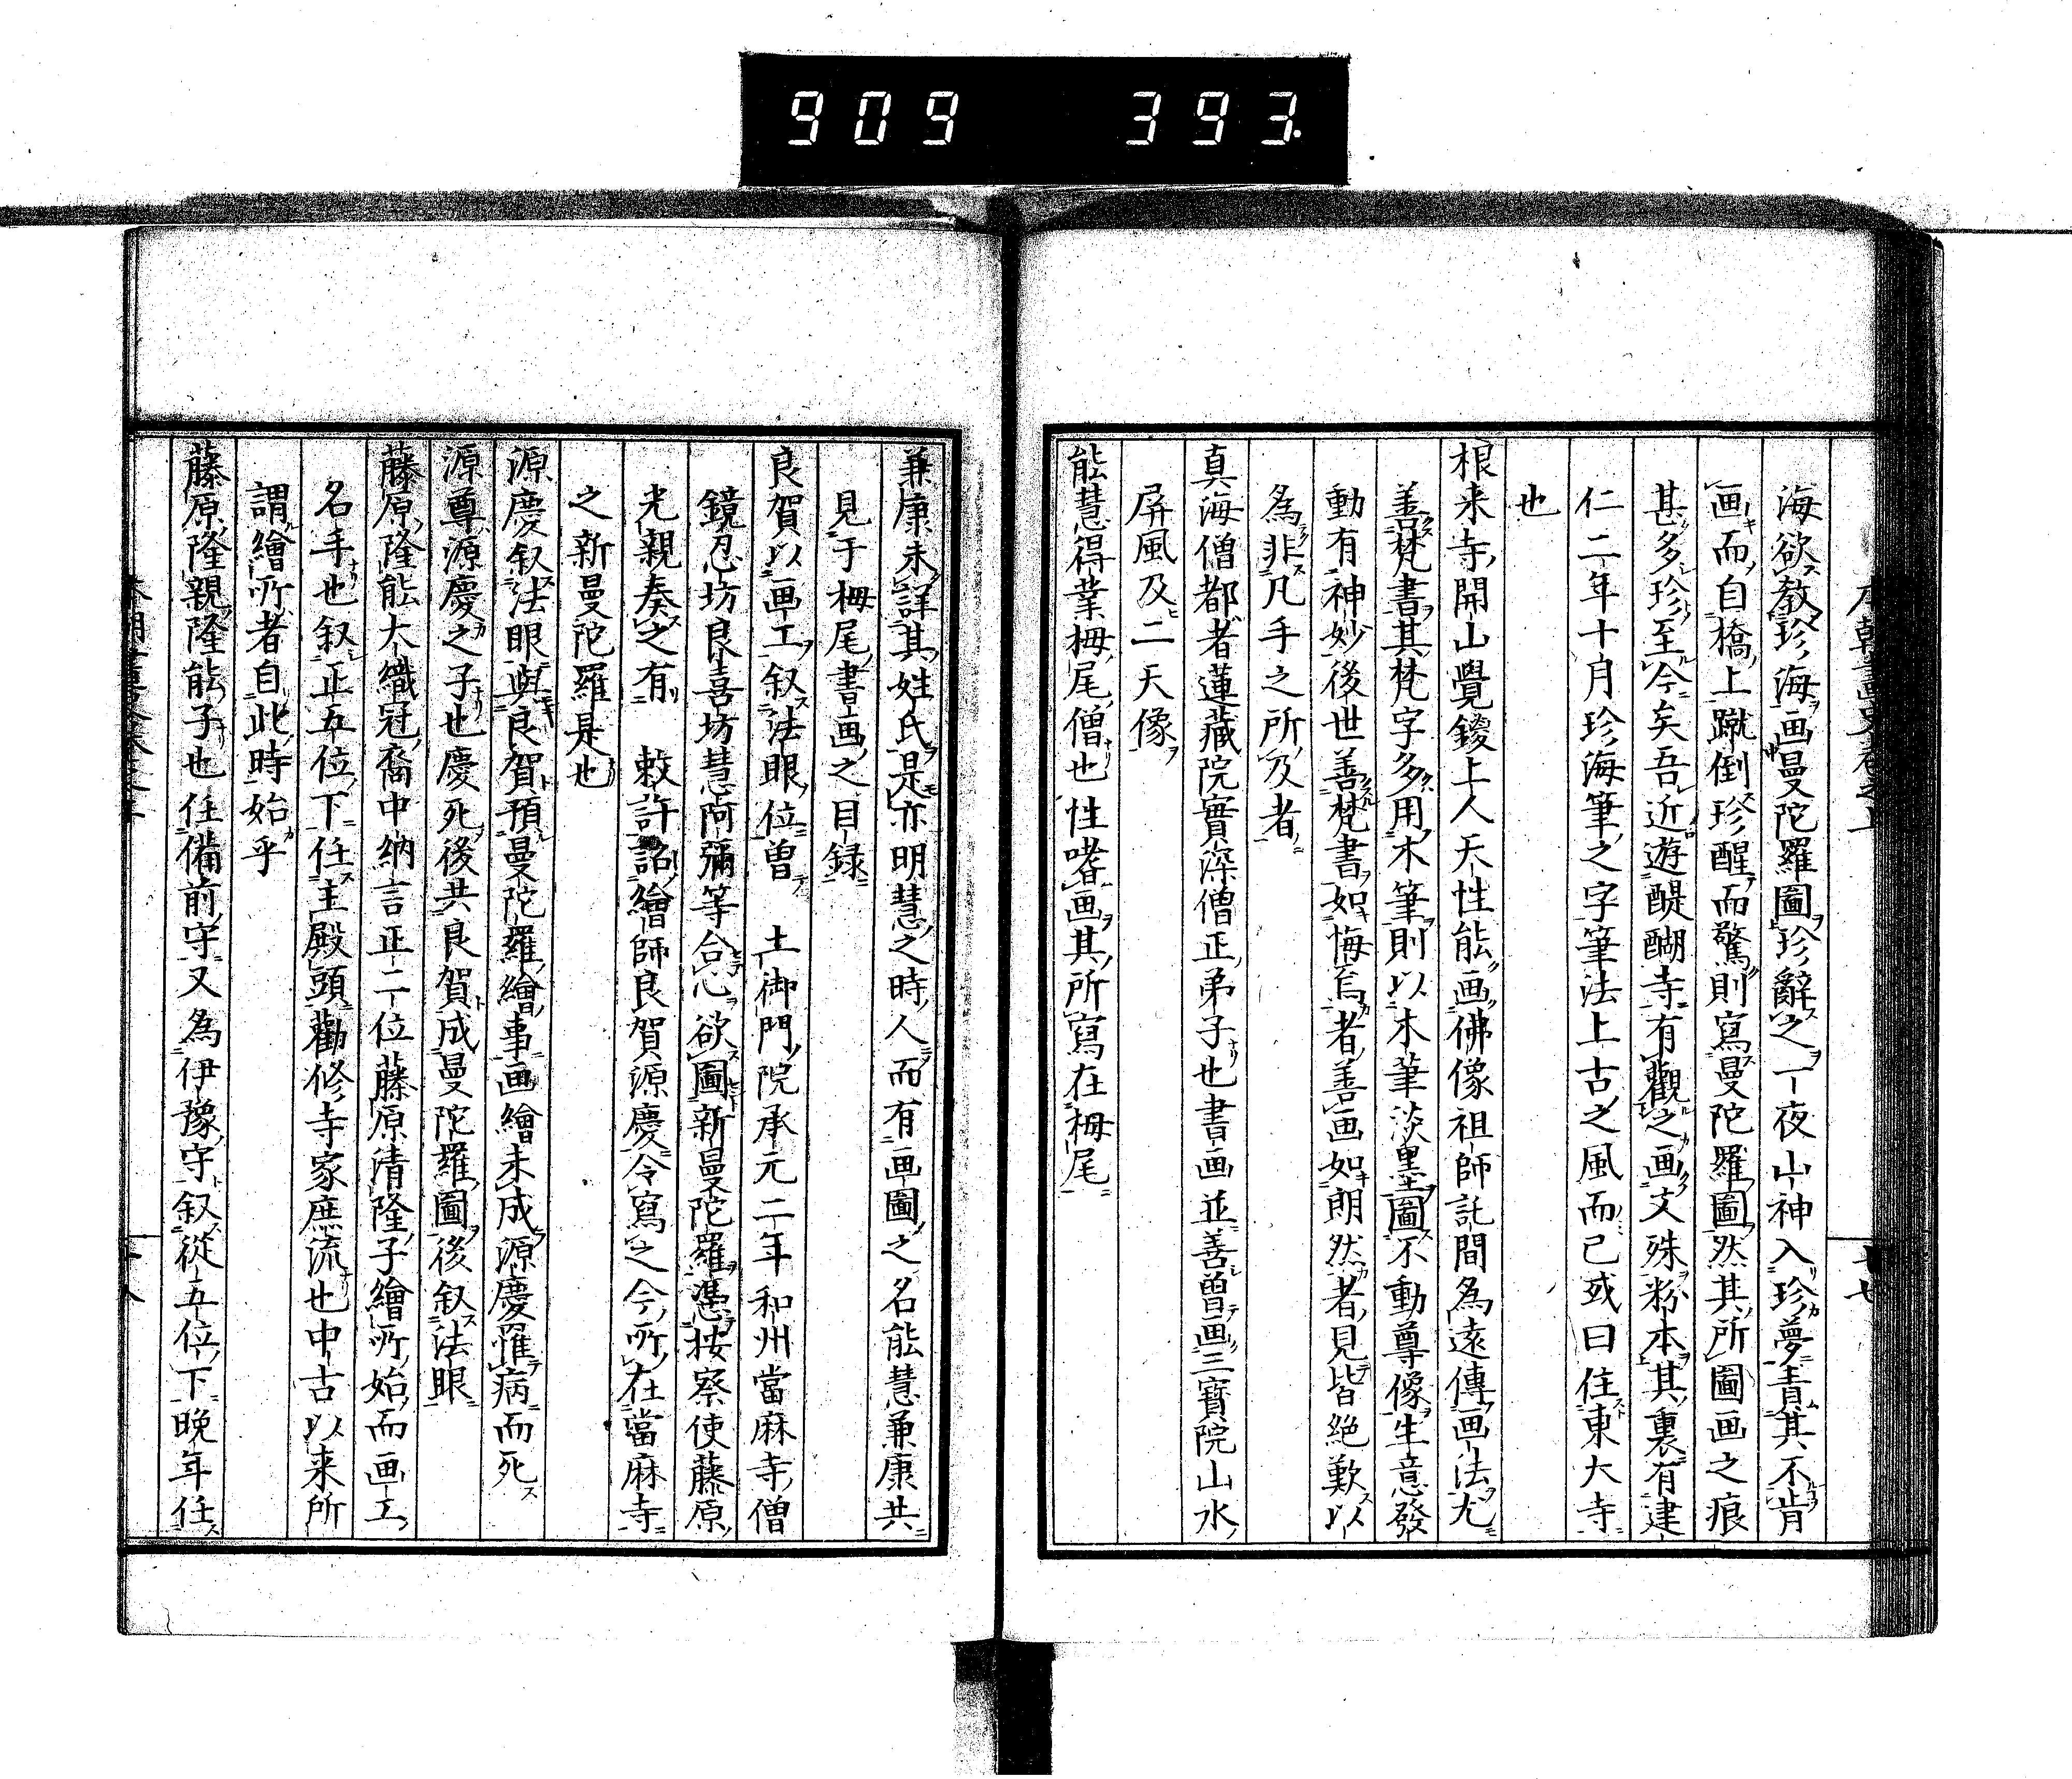 909 393.
海欲教珍海画曼陀羅圖珍辭之一夜山神入珍夢責其不肯
画而自橋上蹴倒珍醒而驚則寫曼陀羅圖然其所圖画之痕
甚多珍至今矣吾近遊醍醐寺有觀之画文殊粉本其裏有建
仁二年十月珍海筆之字筆法上古之風而已或曰住東大寺
也
根来寺開山覺鑁上人天性能画佛像祖師託間為遠傳画法尤
善梵書其梵字多用木筆則以木筆淡墨圖不動尊像生意發
動有神妙後世善梵書如悔焉者善画如朗然者見皆絶歎以
為非凡手之所及者
真海僧都者蓮藏院實深僧正弟子也書画並善曽画三寳院山水
屏風及二天像
能慧得業栂尾僧也性嗜画其所寫在栂尾
兼康未詳其姓氏是亦明慧之時人而有画圖之名能慧兼康共
見于栂尾書画之目録
良賀以画工叙法眼位曽 土御門院承元二年和州當麻寺僧
鏡忍坊良喜坊慧阿彌等合心欲圖新曼陀羅憑按察使藤原
光親奏之有 敕許詔繪師良賀源慶令寫之今所在當麻寺
之新曼陀羅是也
源慶叙法眼與良賀預曼陀羅繪事画繪未成源慶罹病而死
源尊源慶之子也慶死後共良賀成曼陀羅圖後叙法眼
藤原隆能大織冠裔中納言正二位藤原清隆子繪所始而画工
名手也叙正五位下任主殿頭勸修寺家庶流也中古以来所
謂繪所者自此時始乎
藤原隆親隆能子也任備前守又為伊豫守叙從五位下晩年任